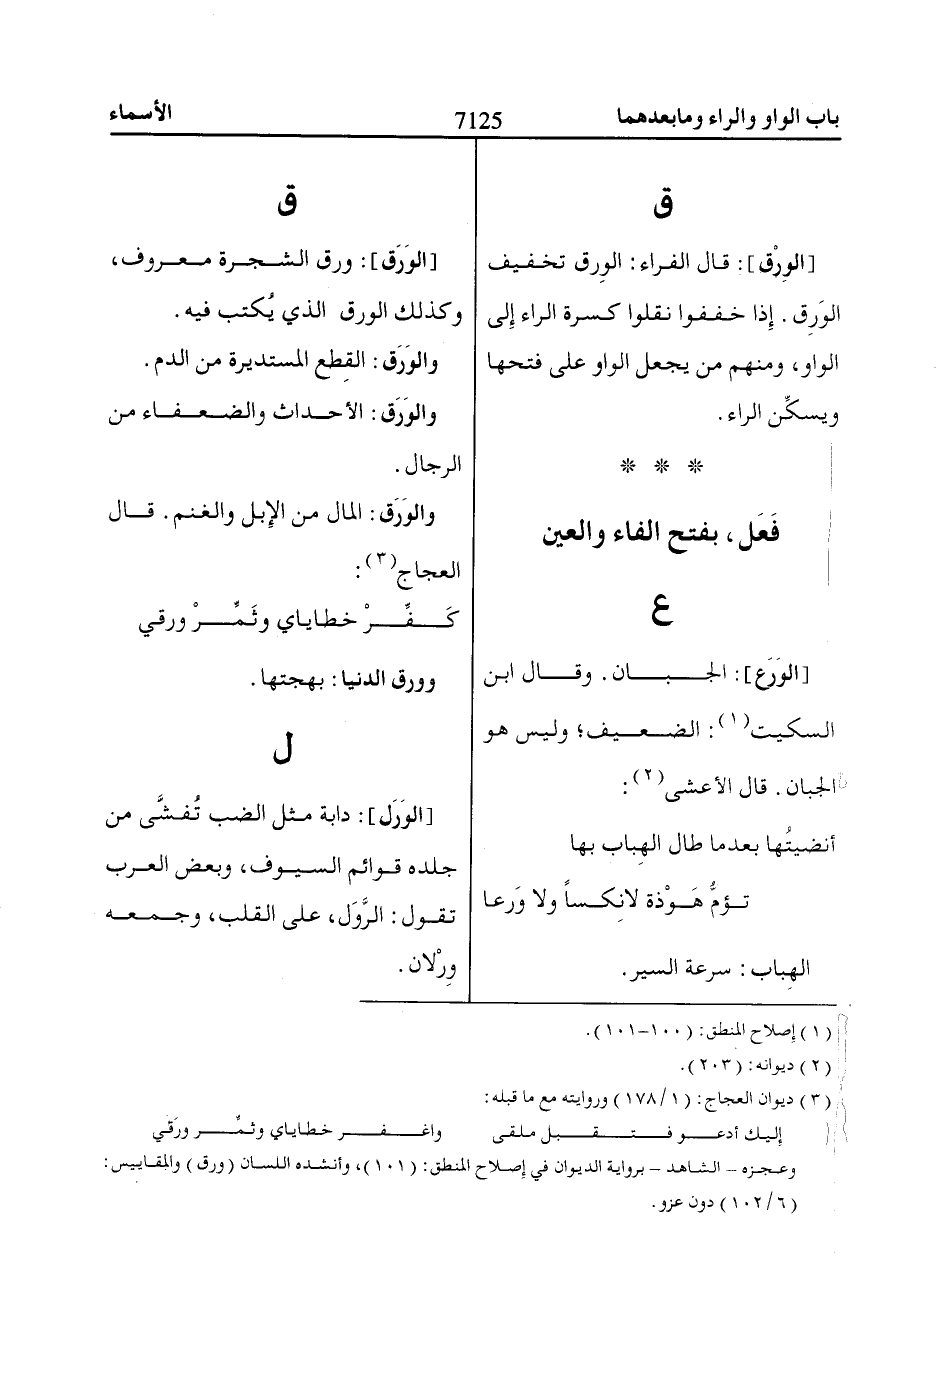 باب الواو والراء ومابعدهما
7125
الأسماء
ق
[الوِرْق]: قال الفراء: الوِرق تخفيف
الوَرِق. إذا خففوا نقلوا كسرة الراء إلى
الواو، ومنهم من يجعل الواو على فتحها
ويسكِّن الراء.
* * *
فَعَل، بفتح الفاء والعين
ع
[الوَرَع]: الجبان. وقال ابن
السكيت(١): الضعيف؛ وليس هو
الجبان. قال الأعشى(٢):
أنضيتُها بعدما طال الهِباب بها
تؤمُّ هَوْذة لانِكساً ولا وَرعا
الهِباب: سرعة السير.
ق
[الوَرَق]: ورق الشجرة معروف،
وكذلك الورق الذي يُكتب فيه.
والوَرَق: القِطع المستديرة من الدم.
والوَرَق: الأحداث والضعفاء من
الرجال.
والوَرَق: المال من الإبل والغنم. قال
العجاج(٣):
كَفِّرْ خطاياي وثَمِّرْ ورقي
وورق الدنيا: بهجتها.
ل
[الوَرَل]: دابة مثل الضب تُغشَّى من
جلده قوائم السيوف، وبعض العرب
تقول: الرَّوَل، على القلب، وجمعه
وِرْلان.
(١) إصلاح المنطق: (١٠٠-١٠١).
(٢) ديوانه: (٢٠٣).
(٣) ديوان العجاج: (١/١٧٨) وروايته مع ما قبله:
إليك أدعو فتقبل ملقى واغفر خطاياي وثمِّر ورَقي
وعجزه – الشاهد – برواية الديوان في إصلاح المنطق: (١٠١)، وأنشده اللسان (ورق) والمقاييس:
(٦/١٠٢) دون عزو.